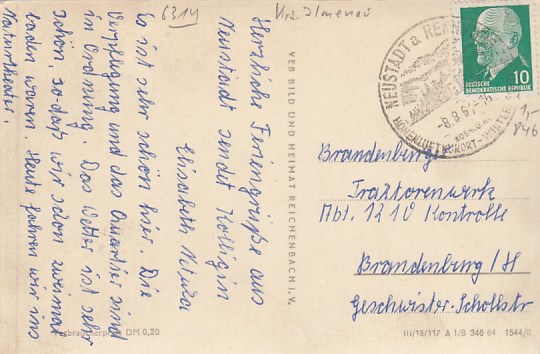 6314
Krs. Ilmenau
Herzliche Feriengrüße aus
Neustadt sendet Kollegin
Elisabeth
Es ist sehr schön hier. Die
Verpflegung und das Quartier sind
in Ordnung. Das Wetter ist sehr
schön, so daß wir schon zweimal
baden waren. Heute fahren wir ins
Naturtheater.
VEB BILD UND HEIMAT REICHENBACH I. V.
NEUSTADT a. RENN
HÖHENLUFTKURORT - WINTER
DEUTSCHE
DEMOKRATISCHE REPUBLIK
10
1,-
846
Brandenburger
Traktorenwerk
Abt. 1210 Kontrolle
Brandenburg/H
Geschwister-Schollstr
Verbraucherpreis DM 0,20
III/18/117 A 1/B 346 64 1544/II